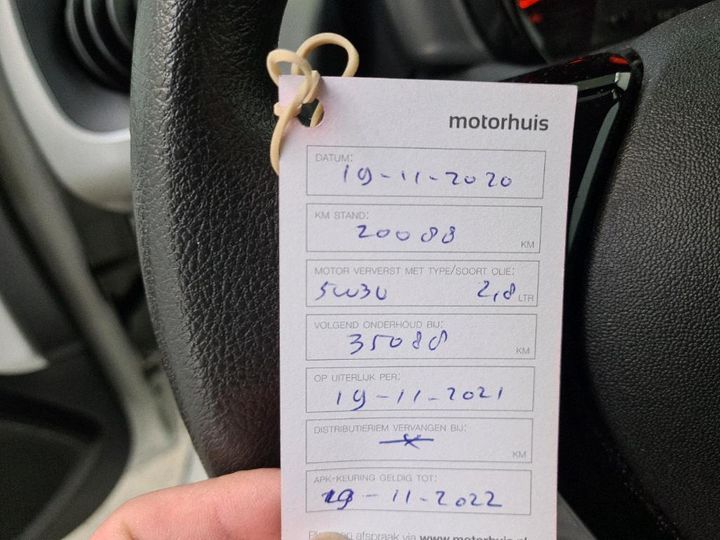 motorhuis
DATUM:
19-11-2020
KM STAND:
20088
KM
MOTOR VERVERST MET TYPE/SOORT OLIE:
5W30 2,8 LTR
VOLGEND ONDERHOUD BIJ:
35088
KM
OP UITERLIJK PER:
19-11-2021
DISTRIBUTIERIEM VERVANGEN BIJ:
KM
APK-KEURING GELDIG TOT:
19-11-2022
afspraak via www.motorhuis.nl